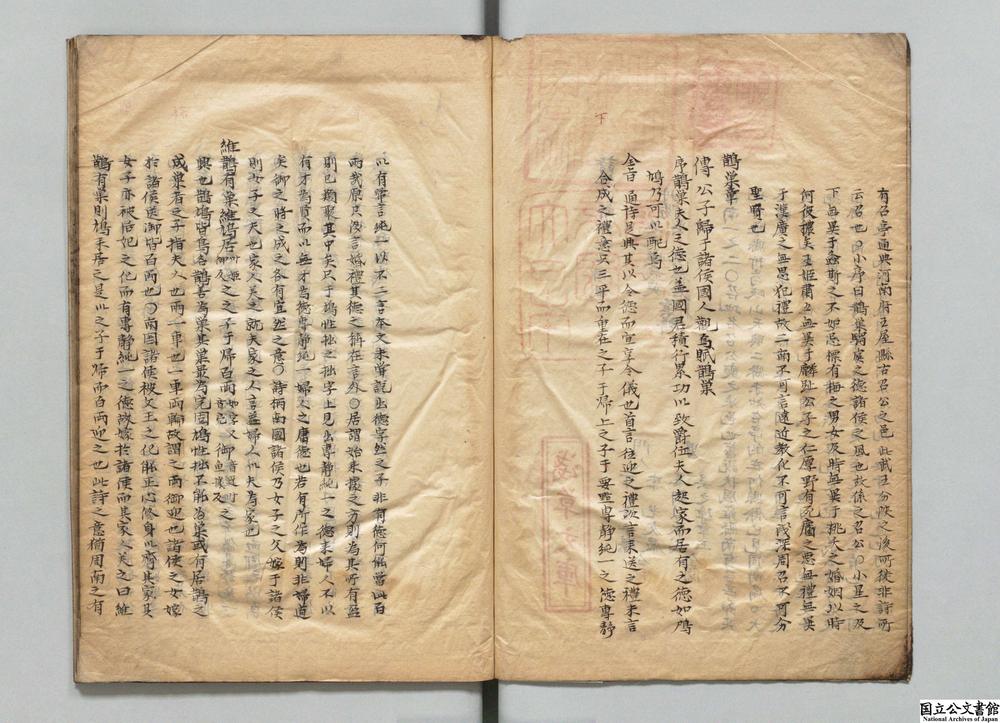 有召亭通典河南府王屋縣古召公之邑此武王分陝之後所徙非詩所
云召也○小序曰鵲巢騶虞之德諸侯之風也故係之召公○小星之及
下無異于螽斯之不妬忌摽有梅之男女及時無異于桃夭之婚姻以時
何彼襛矣王姬肅雝無異于麟趾公子之仁厚野有死麕之惡無禮無異
于漢廣之無思犯禮故二南不可言遠近教化不可言淺深周召不可分
聖賢也
鵲巢章
傳 公子歸于諸侯國人觀焉賦鵲巢
序鵲巢夫人之德也蓋國君積行累功以致爵位夫人起家而居有之德如鳲
鳩乃可以配焉
合言 通詩是興其以令德而宜享令儀也首言往迎之禮次言來送之禮末言
該合成之禮意只三平而重在之子于歸上之子于要照專靜純一之德專靜
以有常言純一以不二言本文未嘗說出德字然之子非有德何堪當此百
兩哉原其後言婚禮其德之稱在言外○居謂始來據之方則為其所有盈
則已類聚其中矣只于鳩性拙之拙字上見出專靜純一之德來婦人不以
有才為賢而以無才為德專靜純一婦人之庸德也若有所作為則非婦道
矣御之將之成之各有宜然之意○詩柄南國諸侯乃女子之父嫁于諸侯
則女子之夫也家人美之就夫家之人言蓋婦人以夫為家也
維鵲有巢維鳩居之之子于歸百兩御之
興也鵲鳩皆鳥名鵲善為巢其巢最為完固鳩性拙不能為巢或有居鵲之
成巢者之子指夫人也兩一車也一車兩輪故謂之兩御迎也諸侯之女嫁
於諸侯送御皆百兩也○南國諸侯被文王之化能正心修身以齊其家其
女子亦被后妃之化而有專靜純一之德故嫁於諸侯而其家人美之曰維
鵲有巢則鳩來居之是以之子于歸而百兩迎之也此詩之意猶周南之有
下
淺草文庫
国立公文書館
National Archives of Japan